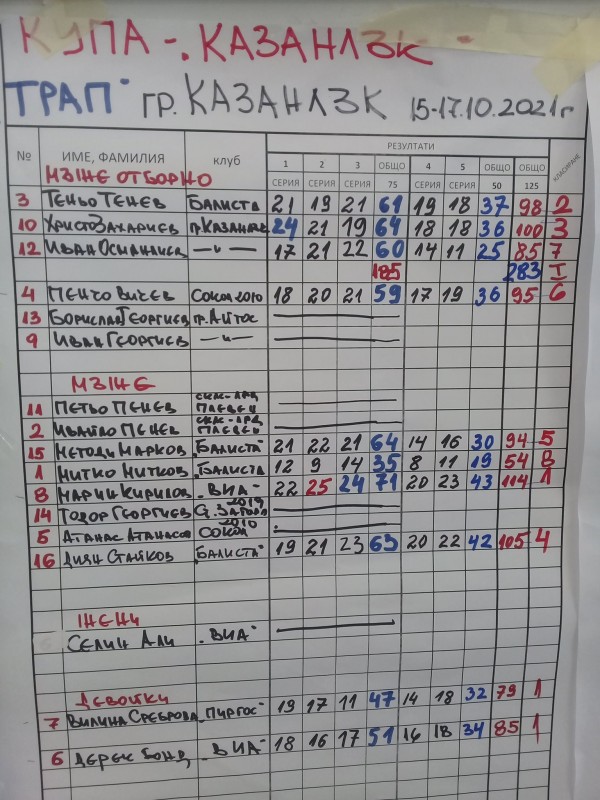 КУПА - "КАЗАНЛЪК"
ТРАП - гр. КАЗАНЛЪК 15-17.10.2021г
№ ИМЕ, ФАМИЛИЯ клуб РЕЗУЛТАТИ КЛАСИРАНЕ
1 2 3 ОБЩО 4 5 ОБЩО ОБЩО
СЕРИЯ СЕРИЯ СЕРИЯ 75 СЕРИЯ СЕРИЯ 50 125
МЪЖЕ ОТБОРНО
3 ТЕНЬО ТЕНЕВ БАЛИСТА 21 19 21 61 19 18 37 98 2
10 ХРИСТО ЗАХАРИЕВ гр. КАЗАНЛЪК 24 21 19 64 18 18 36 100 3
12 ИВАН — " — 17 21 22 60 14 11 25 85 7
185 283 I
4 ПЕНЧО ВИЧЕВ СОКОЛ 2010 18 20 21 59 17 19 36 95 6
13 БОРИСЛАВ ГЕОРГИЕВ гр. АЙТОС
9 ИВАН ГЕОРГИЕВ — " —
МЪЖЕ
11 ПЕТЬО ПЕНЕВ ПЛЕВЕН
2 ИВАЙЛО ПЕНЕВ ПЛЕВЕН
15 МЕТОДИ МАРКОВ "БАЛИСТА" 21 22 21 64 14 16 30 94 5
1 МИТКО МИТКОВ "БАЛИСТА 12 9 14 35 8 11 19 54 8
8 МАРИН КИРИЛОВ "ВИА" 22 25 24 71 20 23 43 114 1
14 ТОДОР ГЕОРГИЕВ С. ЗАГОРА 2019
5 АТАНАС АТАНАСОВ СОКОЛ 2010
16 ДИЯН СТАЙКОВ "БАЛИСТА" 19 21 23 63 20 22 42 105 4
ЖЕНИ
СЕЛИН АЛИ "ВИА"
ДЕВОЙКИ
7 ВИЛИНА СРЕБРОВА "ПИРГОС" 19 17 11 47 14 18 32 79 1
6 ДЕРЕК БОНД "ВИА" 18 16 17 51 16 18 34 85 1